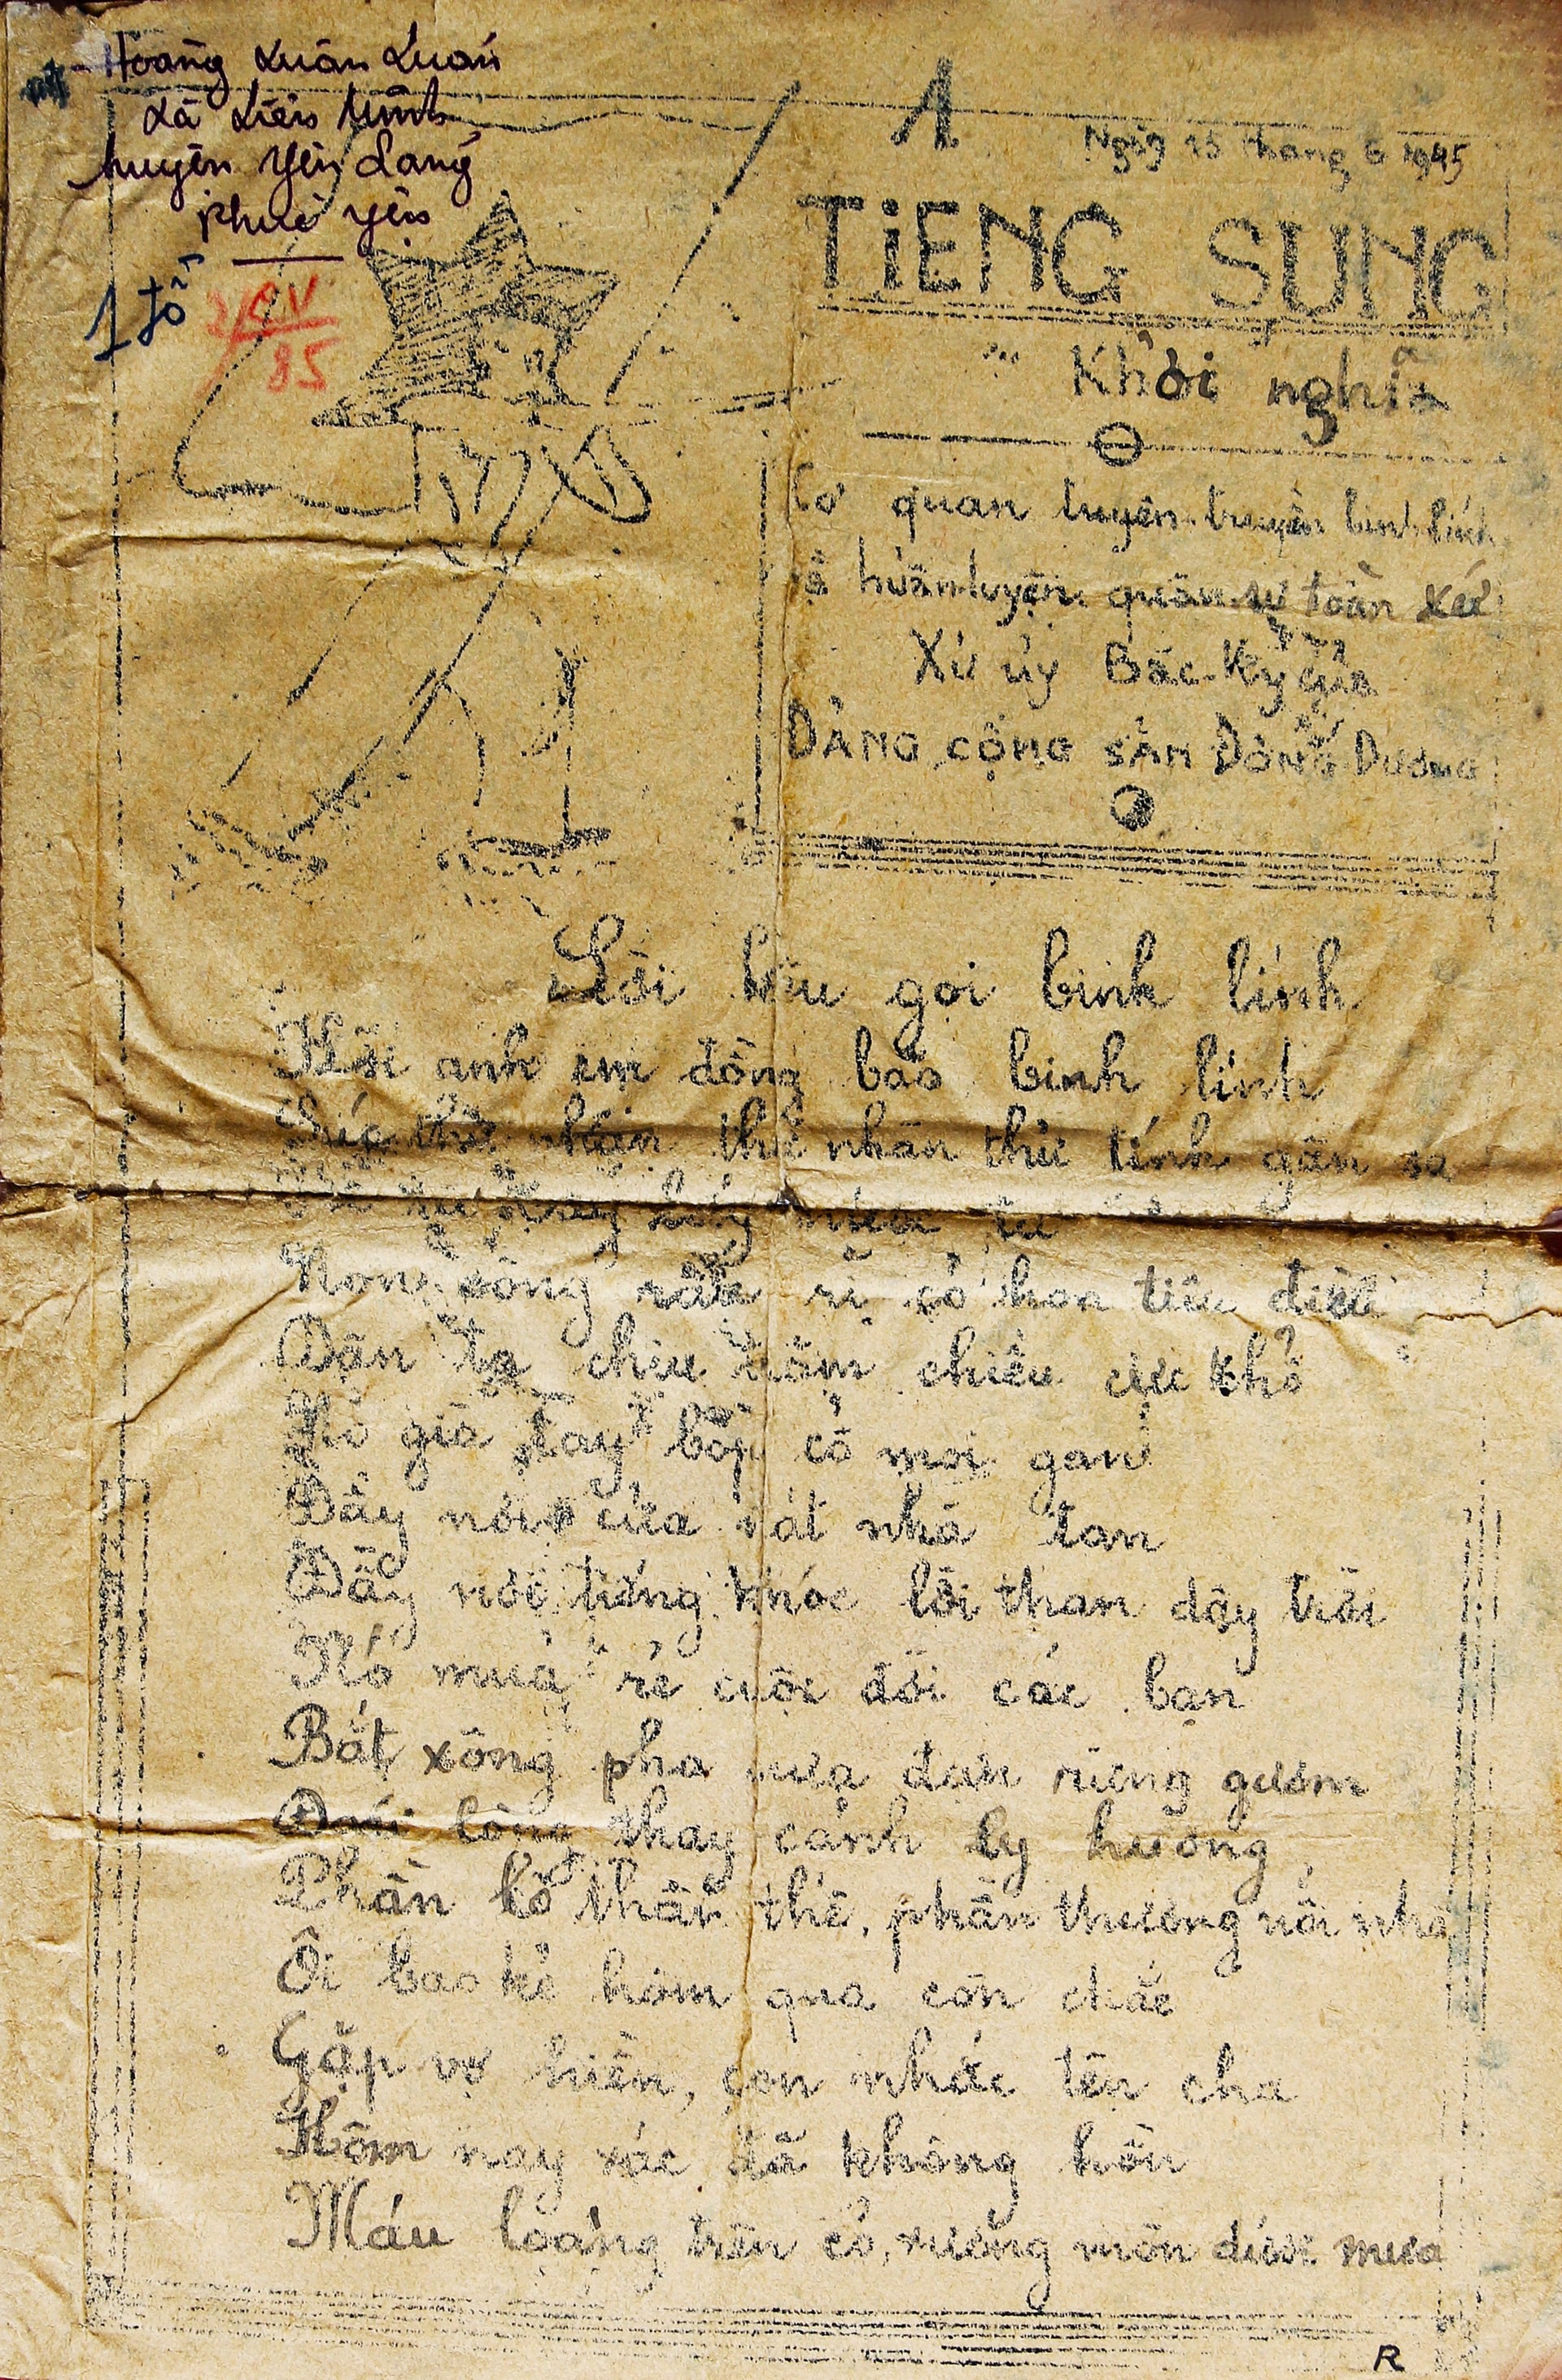 Hoàng Xuân Luân
Xã Liên Minh
huyện Yên Lang
Phúc Yên
1 tờ
85
1
Ngày 15 tháng 6 1945
TIENG SUNG
Khởi nghĩa
Cơ quan tuyên-truyền binh lính
và huấn-luyện quân-sự toàn xứ
Xứ ủy Bắc-Kỳ của
ĐẢNG CỘNG SẢN ĐÔNG DƯƠNG
Lời kêu gọi binh lính
Hỡi anh em đồng bào binh lính
thử nhân thử tính gần xa
Non sông rầu rĩ cỏ hoa tiêu điều
Dân ta chịu trăm chiều cực khổ
giã tay bóp cổ moi gan
Đầy nơi cửa nát nhà tan
Đầy nơi tiếng khóc lời than dậy trời
Nó mua rẻ cuộc đời các bạn
Bắt xông pha mưa đạn rừng gươm
Đau lòng thay cảnh ly hương
Phần lo thân thế, phần thương nỗi nhà
Ôi bao kẻ hôm qua còn chắc
Gặp vợ hiền, con nhắc tên cha
Hôm nay xác đã không hồn
Máu loang trên cỏ, xương mòn dưới mưa
R